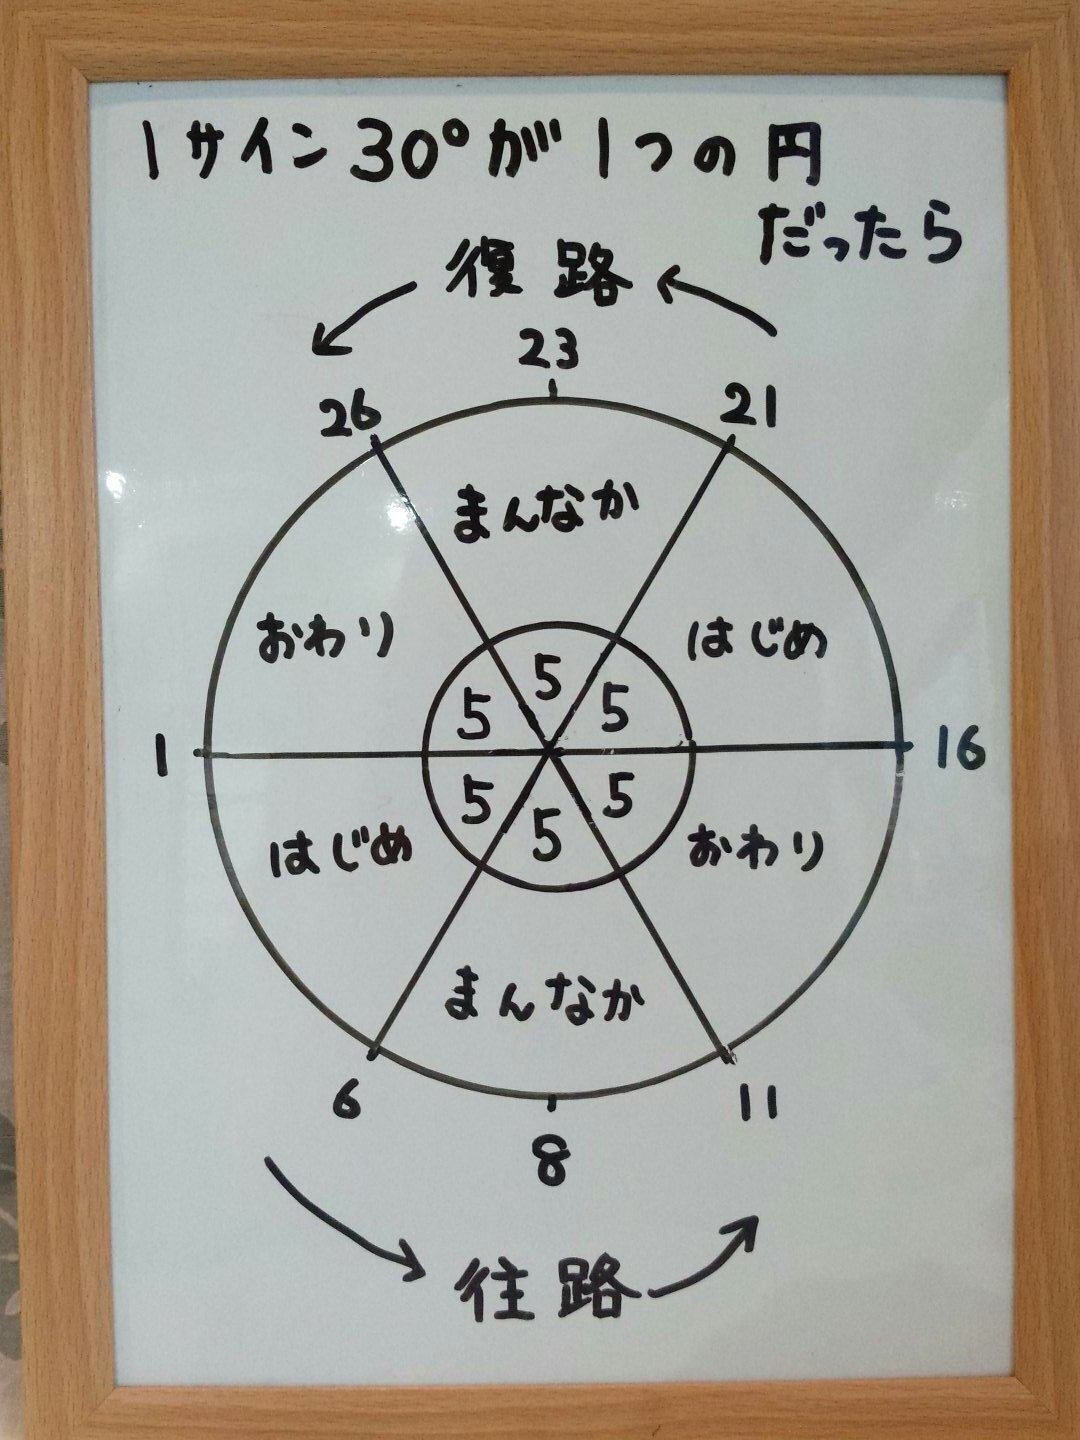 1サイン30°が1つの円
だったら
復路
23
26
21
まんなか
おわり
はじめ
5
5
5
1
16
5
5
5
はじめ
おわり
まんなか
6
11
8
往路